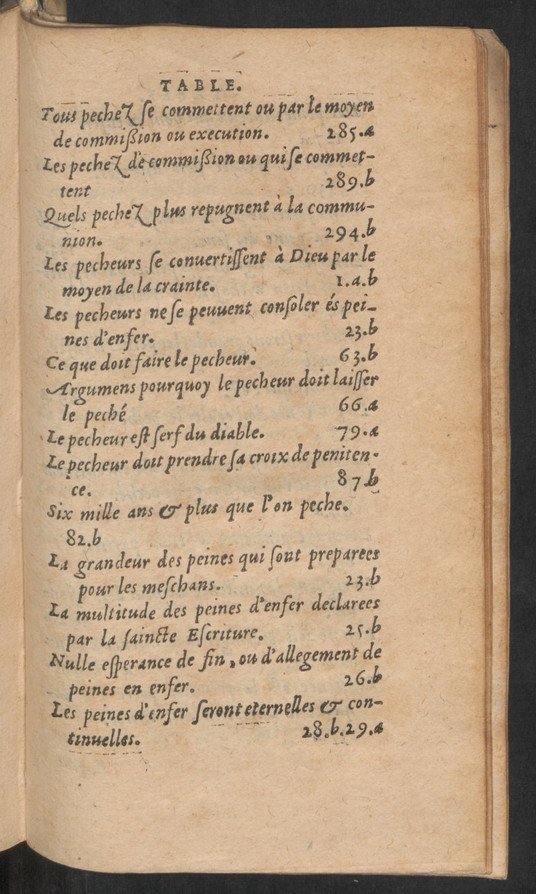 TABLE.
Tous pechez se commettent ou par le moyen
de commißion ou execution. 285.a
Les pechez de commißion ou qui se commet-
tent 289.b
Quels pechez plus repugnent à la commu-
nion. 294.b
Les pecheurs se conuertissent à Dieu par le
moyen de la crainte. 1.a.b
Les pecheurs ne se peuuent consoler és pei-
nes d'enfer. 23.b
Ce que doit faire le pecheur. 63.b
Argumens pourquoy le pecheur doit laisser
le peché 66.a
Le pecheur est serf du diable. 79.a
Le pecheur doit prendre sa croix de peniten-
ce. 87.b
Six mille ans & plus que l'on peche.
82.b
La grandeur des peines qui sont preparees
pour les meschans. 23.b
La multitude des peines d'enfer declarees
par la saincte Escriture. 25.b
Nulle esperance de fin, ou d'allegement de
peines en enfer. 26.b
Les peines d'enfer seront eternelles & con-
tinuelles. 28.b.29.a